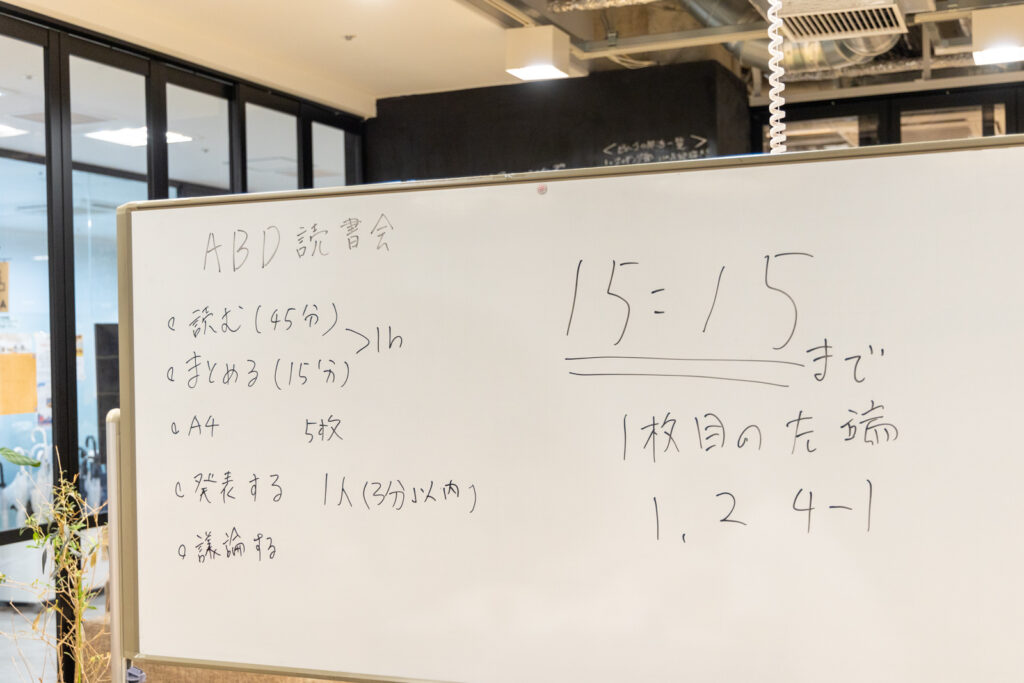 ABD 読書会
読む(45分)
>1h
まとめる(15分)
A4 5枚
発表する 1人(3分以内)
議論する
15=15
まで
1枚目の左端
1, 2 4-1